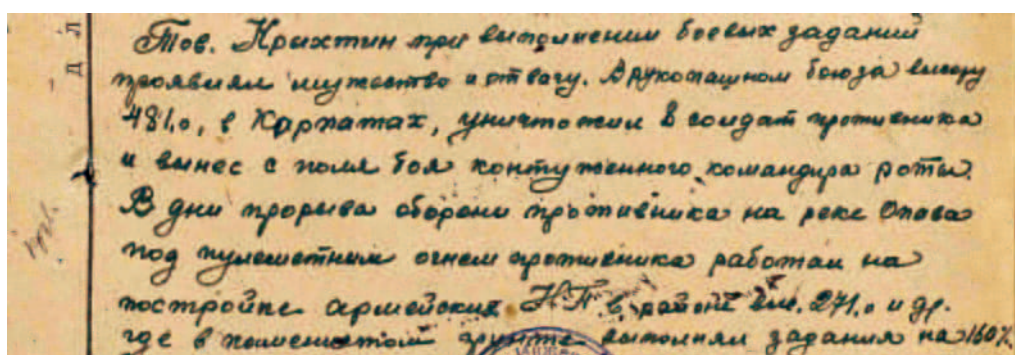 Д Л
Тов. Крихтин при выполнении боевых заданий
проявлял мужество и отвагу. В рукопашном бою за высоту
481,0, в Карпатах, уничтожил 8 солдат противника
и вынес с поля боя контуженного командира роты.
В дни прорыва обороны противника на реке Опава
под пулеметным огнем противника работал на
постройке армейских Н.П в районе выс. 271,0 и др.
где в каменистом грунте выполнял задания на 160%